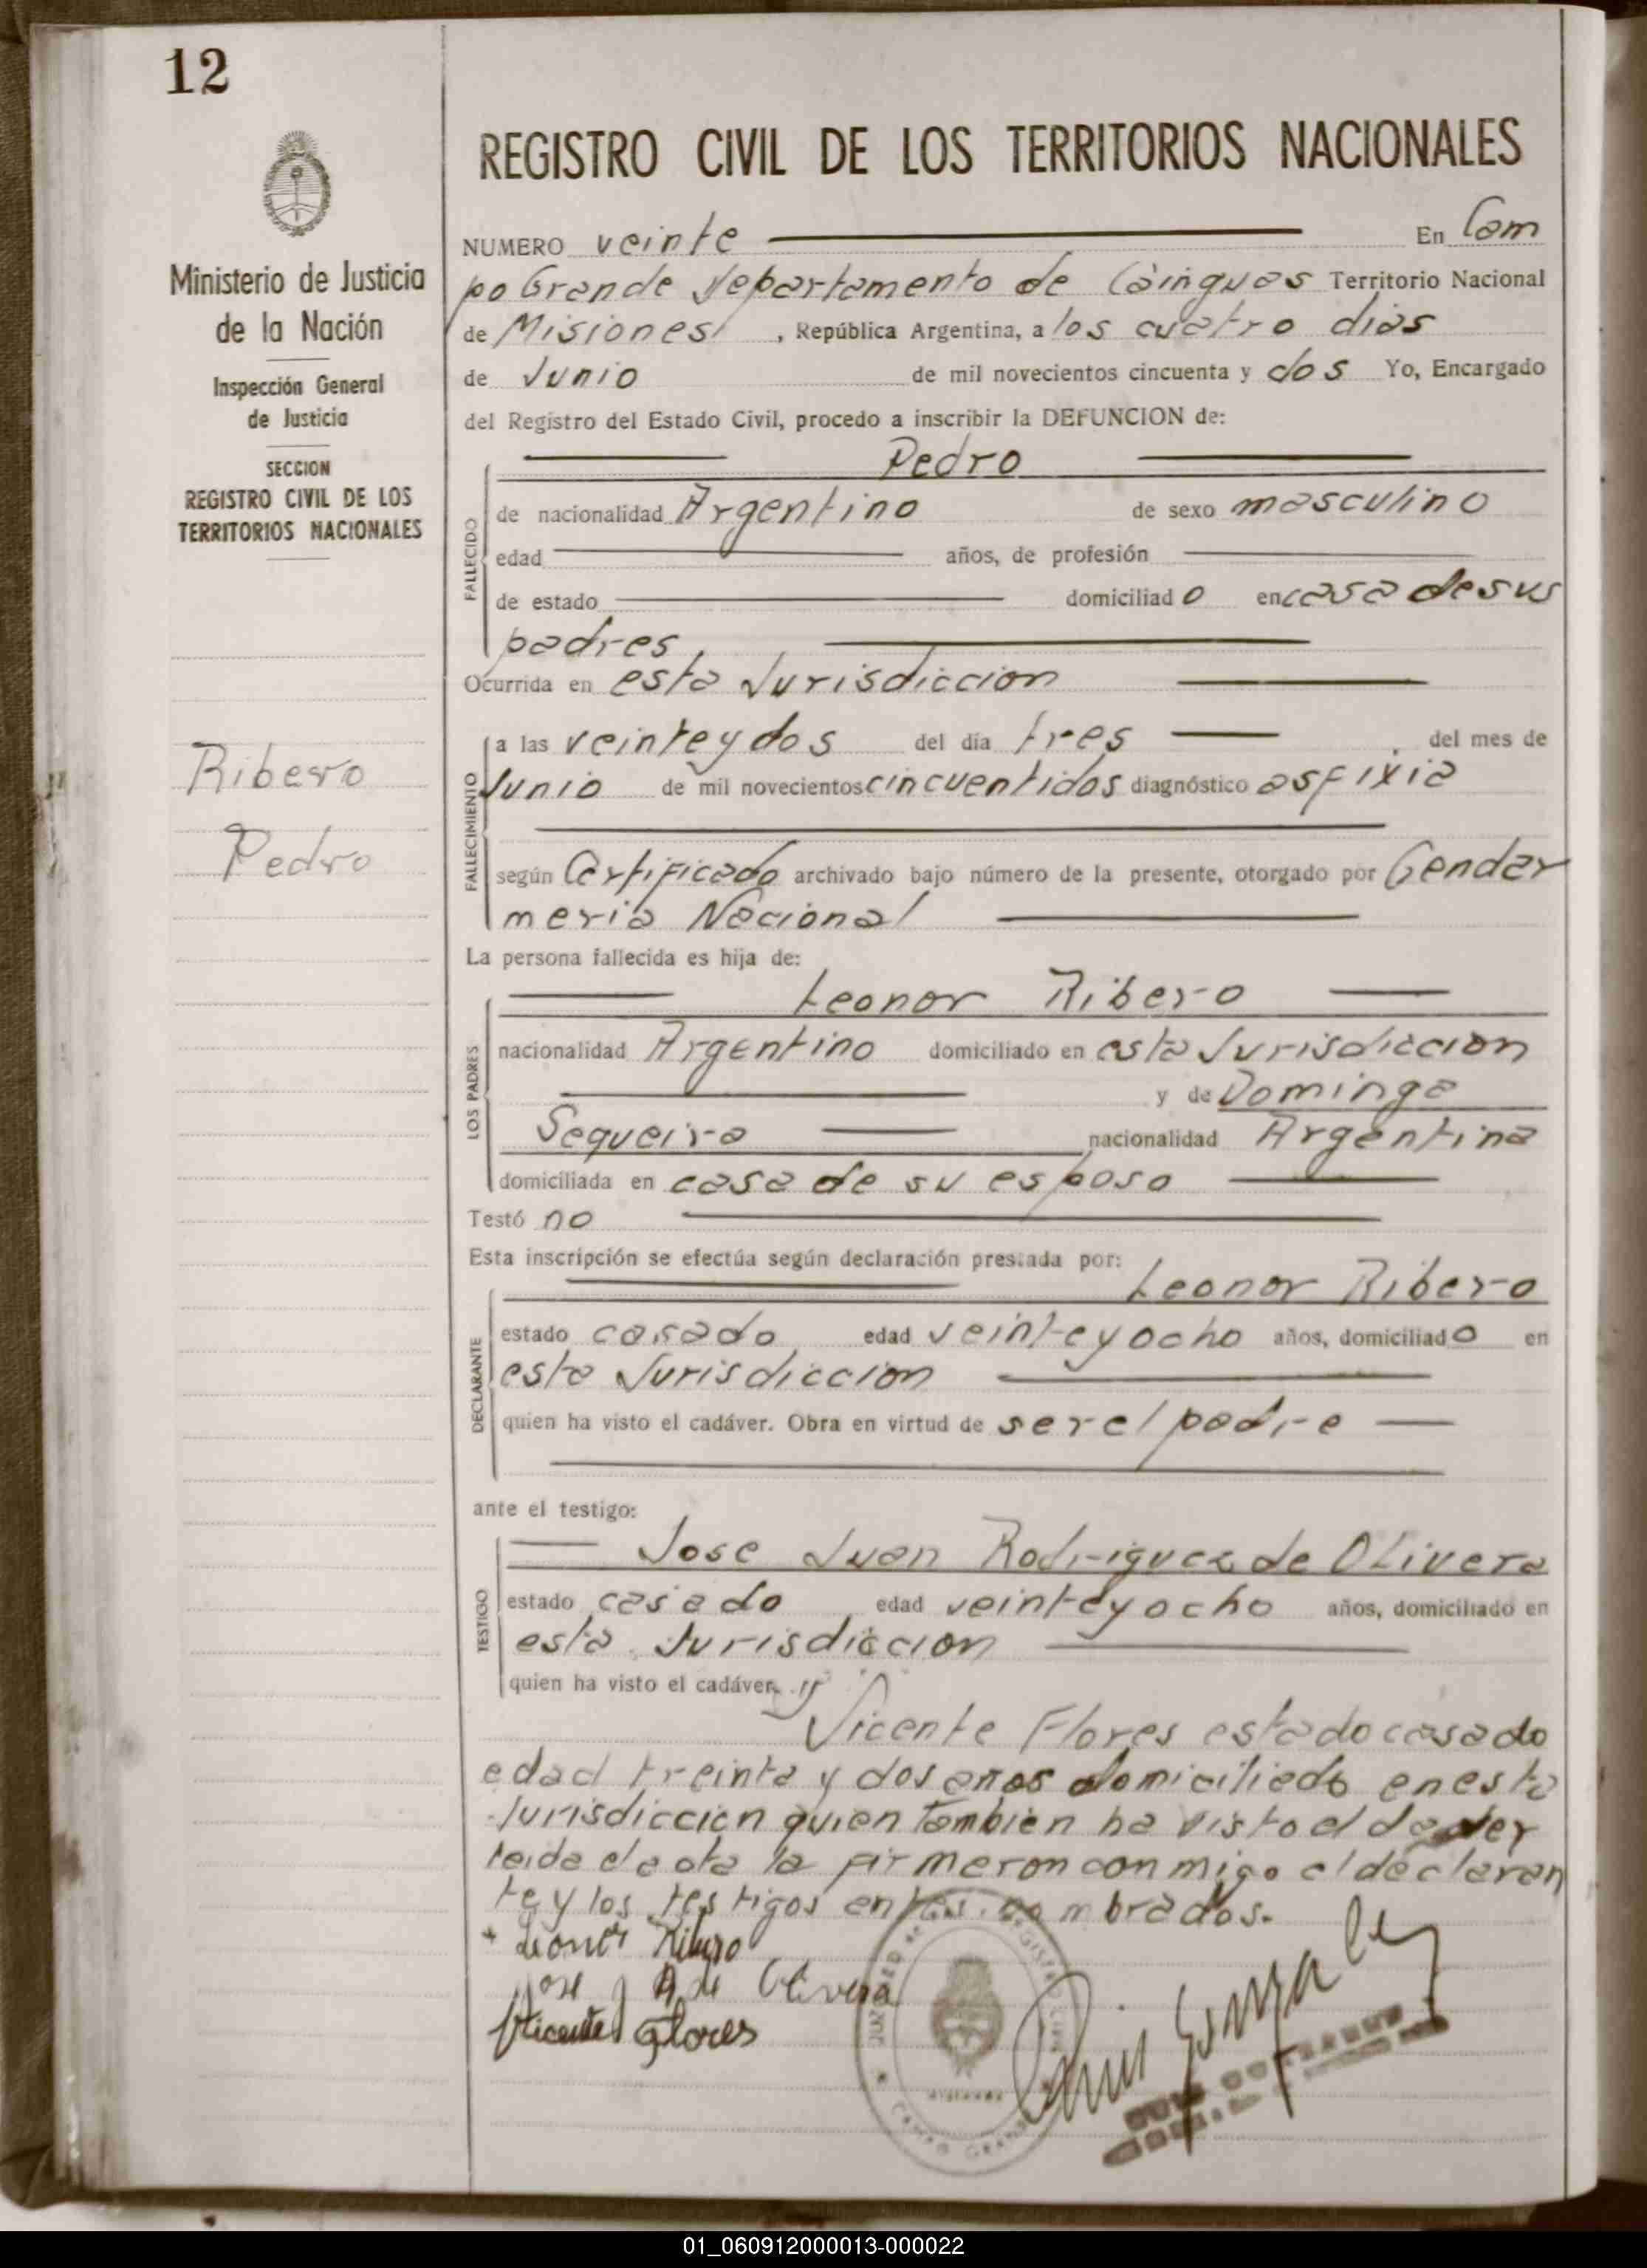 12
Ministerio de Justicia
de la Nación
Inspección General
de Justicia
SECCION
REGISTRO CIVIL DE LOS
TERRITORIOS NACIONALES
Ribero
Pedro
REGISTRO CIVIL DE LOS TERRITORIOS NACIONALES
NUMERO veinte En Cam
po Grande Departamento de Cainguas Territorio Nacional
de Misiones, República Argentina, a los cuatro dias
de Junio de mil novecientos cincuenta y dos Yo, Encargado
del Registro del Estado Civil, procedo a inscribir la DEFUNCION de:
Pedro
FALLECIDO
de nacionalidad Argentino de sexo masculino
edad años, de profesión
de estado domiciliado en casa de sus
padres
Ocurrida en esta Jurisdiccion
FALLECIMIENTO
a las veinte y dos del día tres del mes de
Junio de mil novecientos cincuentidos diagnóstico asfixia
según Certificado archivado bajo número de la presente, otorgado por Gendar
meria Nacional
La persona fallecida es hija de:
LOS PADRES
Leonor Ribero
nacionalidad Argentino domiciliado en esta Jurisdiccion
y de Dominga
Sequeira nacionalidad Argentina
domiciliada en casa de su esposo
Testó no
Esta inscripción se efectúa según declaración prestada por:
DECLARANTE
Leonor Ribero
estado casado edad veinte y ocho años, domiciliado en
esta Jurisdiccion
quien ha visto el cadáver. Obra en virtud de ser el padre
ante el testigo:
TESTIGO
Jose Juan Rodriguez de Olivera
estado casado edad veinte y ocho años, domiciliado en
esta Jurisdiccion
quien ha visto el cadáver. y
Vicente Flores estado casado
edad treinta y dos años domiciliado en esta
Jurisdiccion quien tambien ha visto el
leida el acta la firmeron con migo el declaran
te y los testigos nombrados.
Leonor Ribero
Jose J R de Olivera
Vicente Flores
Luis Gonzalez
CAMPO GRANDE
01_060912000013-000022